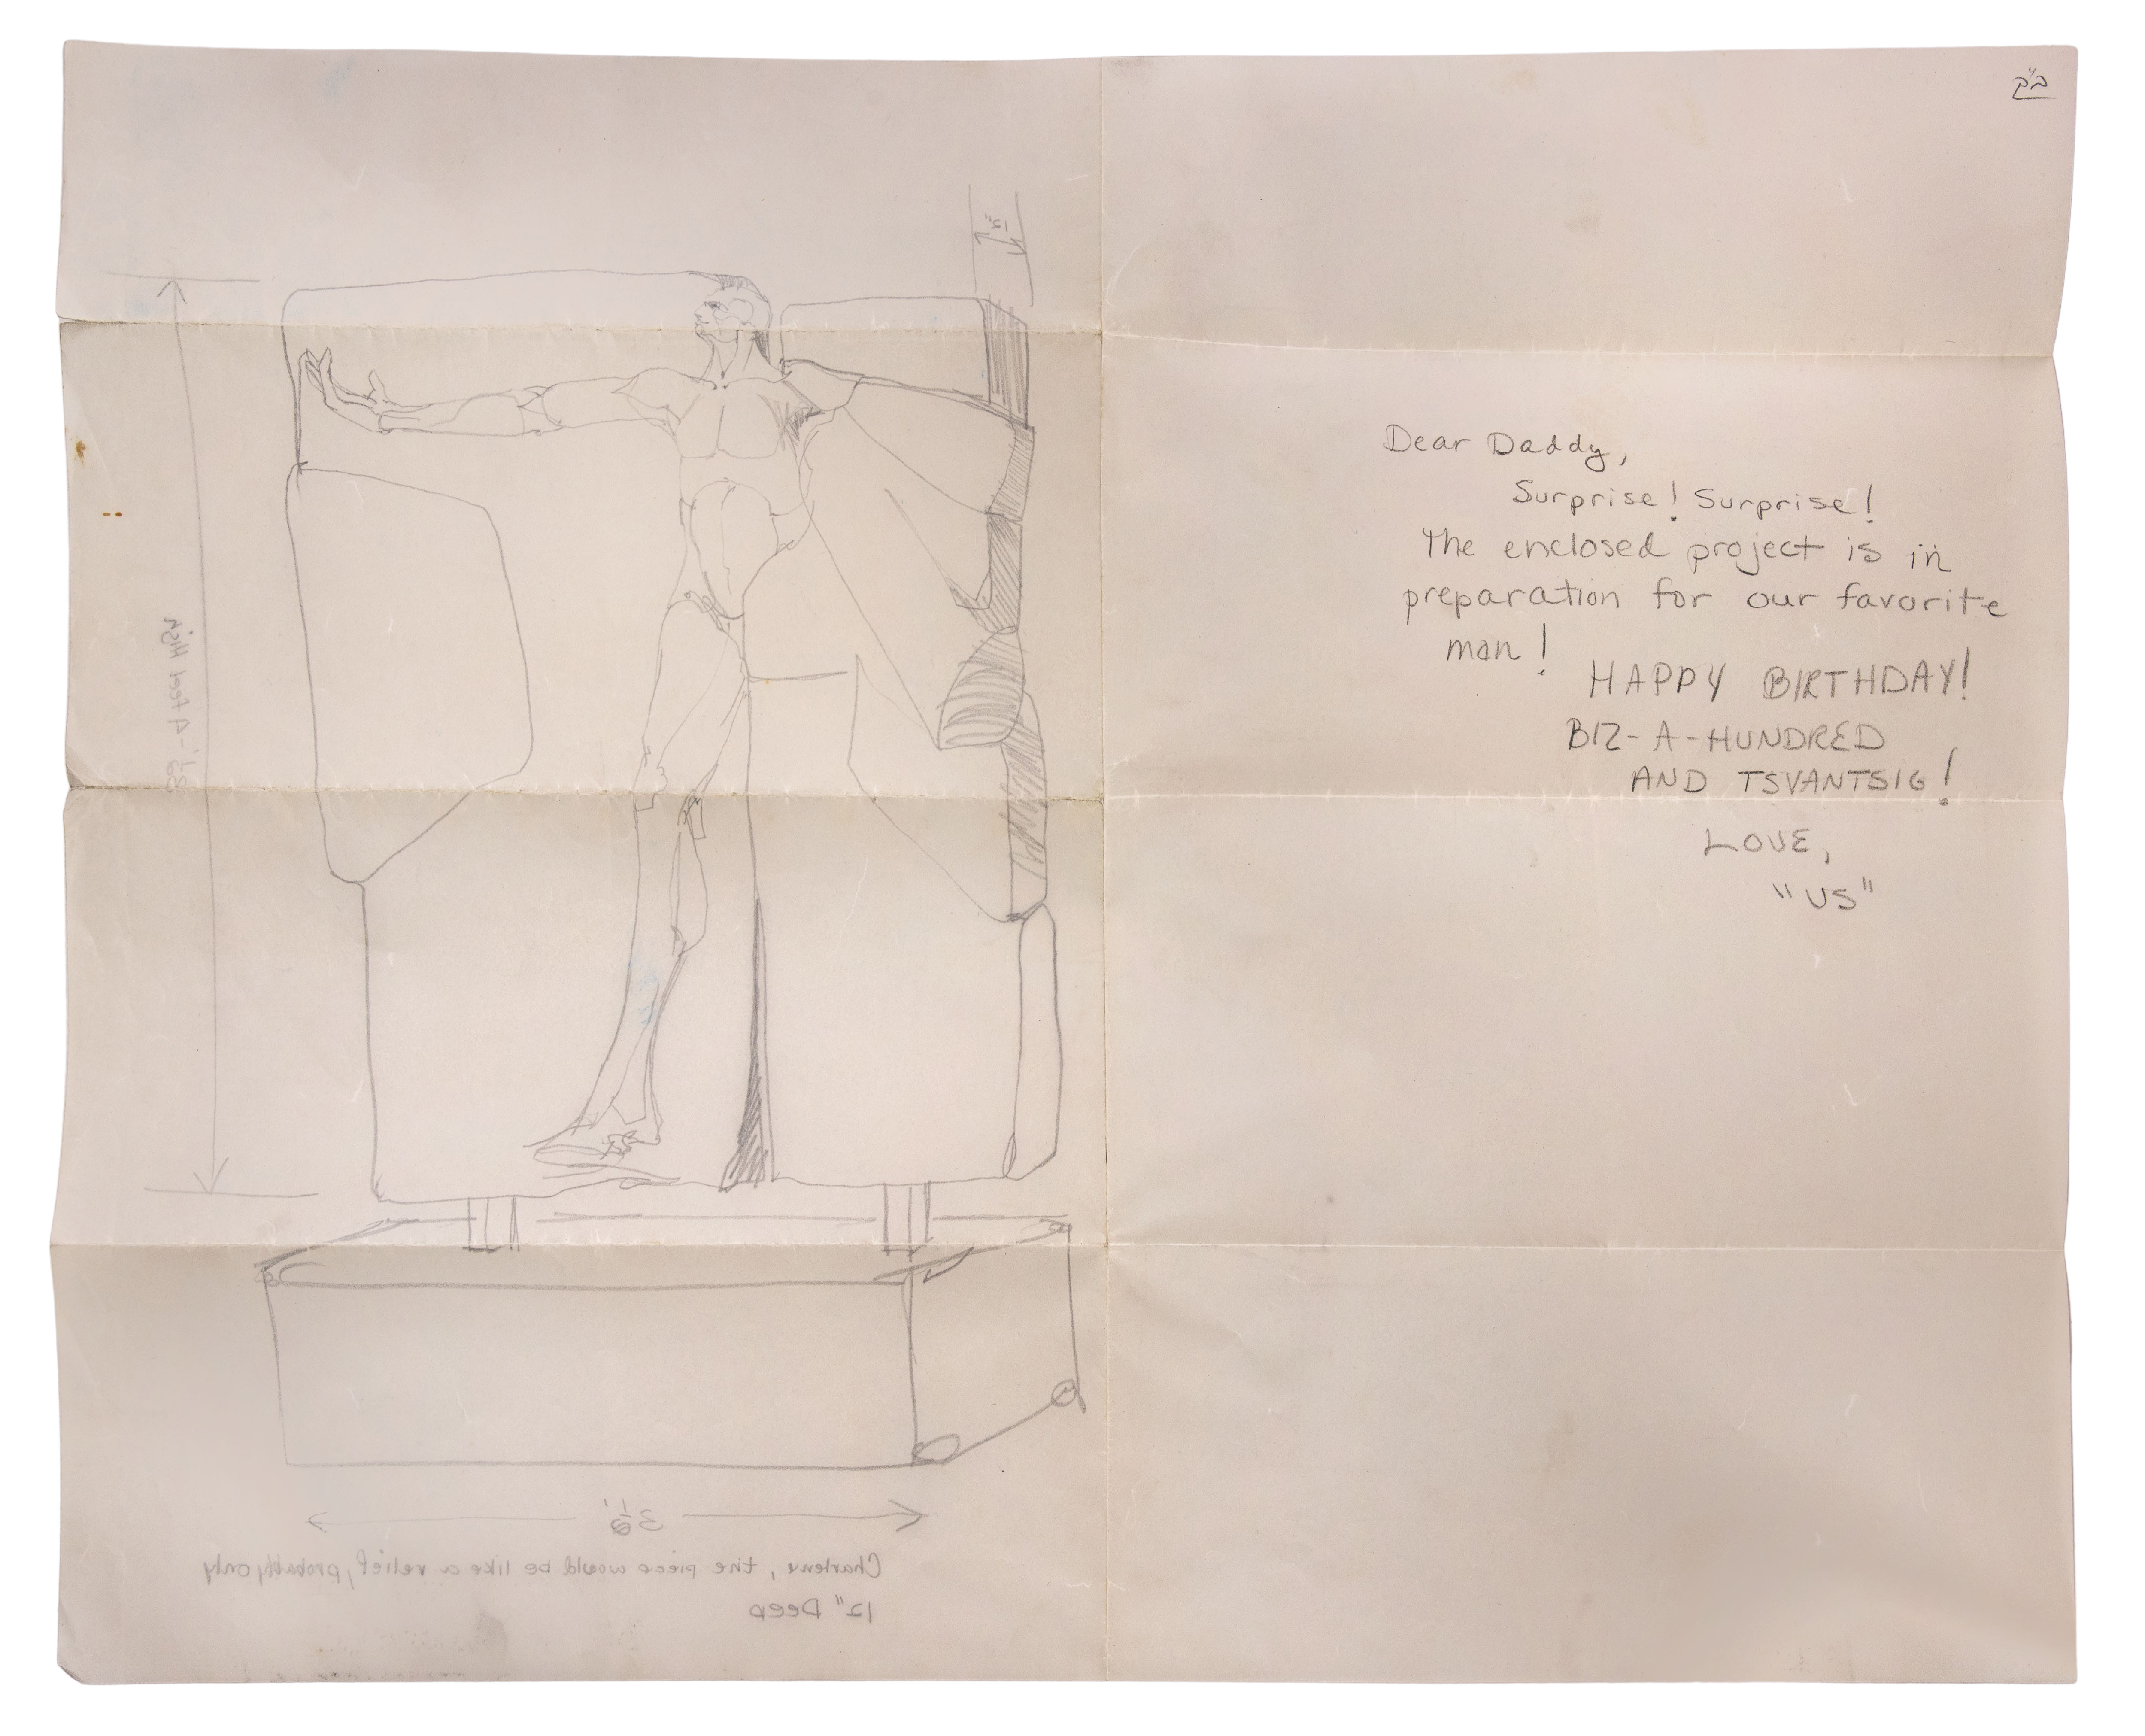 ב"ה
12"
3½'-4 feet High
3½'
Charlene, the piece would be like a relief, probably only
12" Deep
Dear Daddy,
Surprise! Surprise!
The enclosed project is in
preparation for our favorite
man!
HAPPY BIRTHDAY!
BIZ-A-HUNDRED
AND TSVANTSIG!
LOVE,
"US"